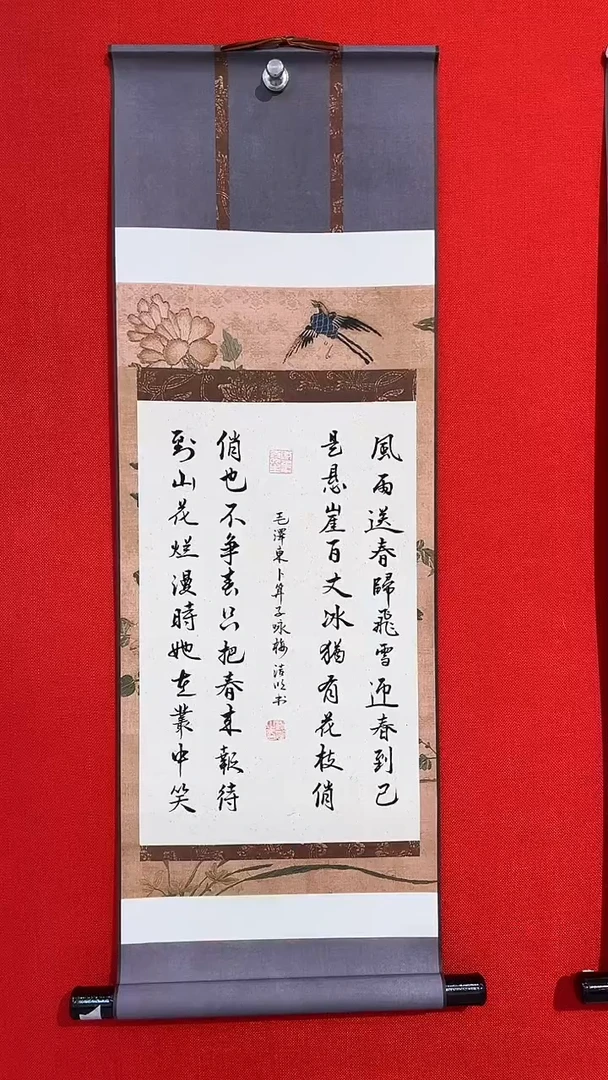 風雨送春歸飛雪迎春到已
是悬崖百丈冰猶有花枝俏
毛澤東卜算子咏梅 书
俏也不争春只把春来報待
到山花烂漫時她在叢中笑